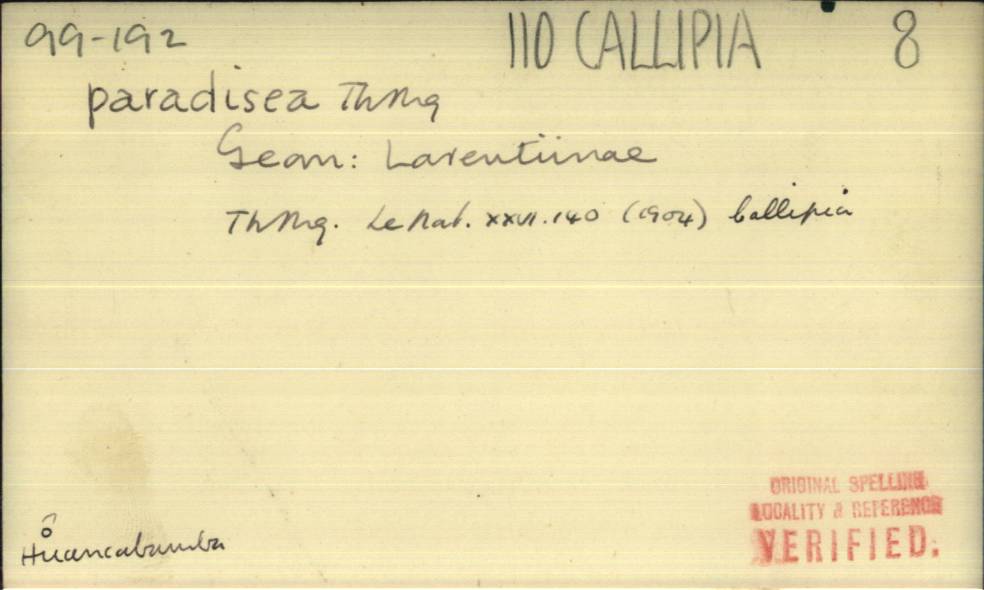 99-192 110 CALLIPIA 8
paradisea Th Mg
Geom: Larentiinae
Th Mg. Le Nat. xxvi. 140 (1904) Callipia
ORIGINAL SPELLING
LOCALITY & REFERENCE
VERIFIED.
Huancabamba